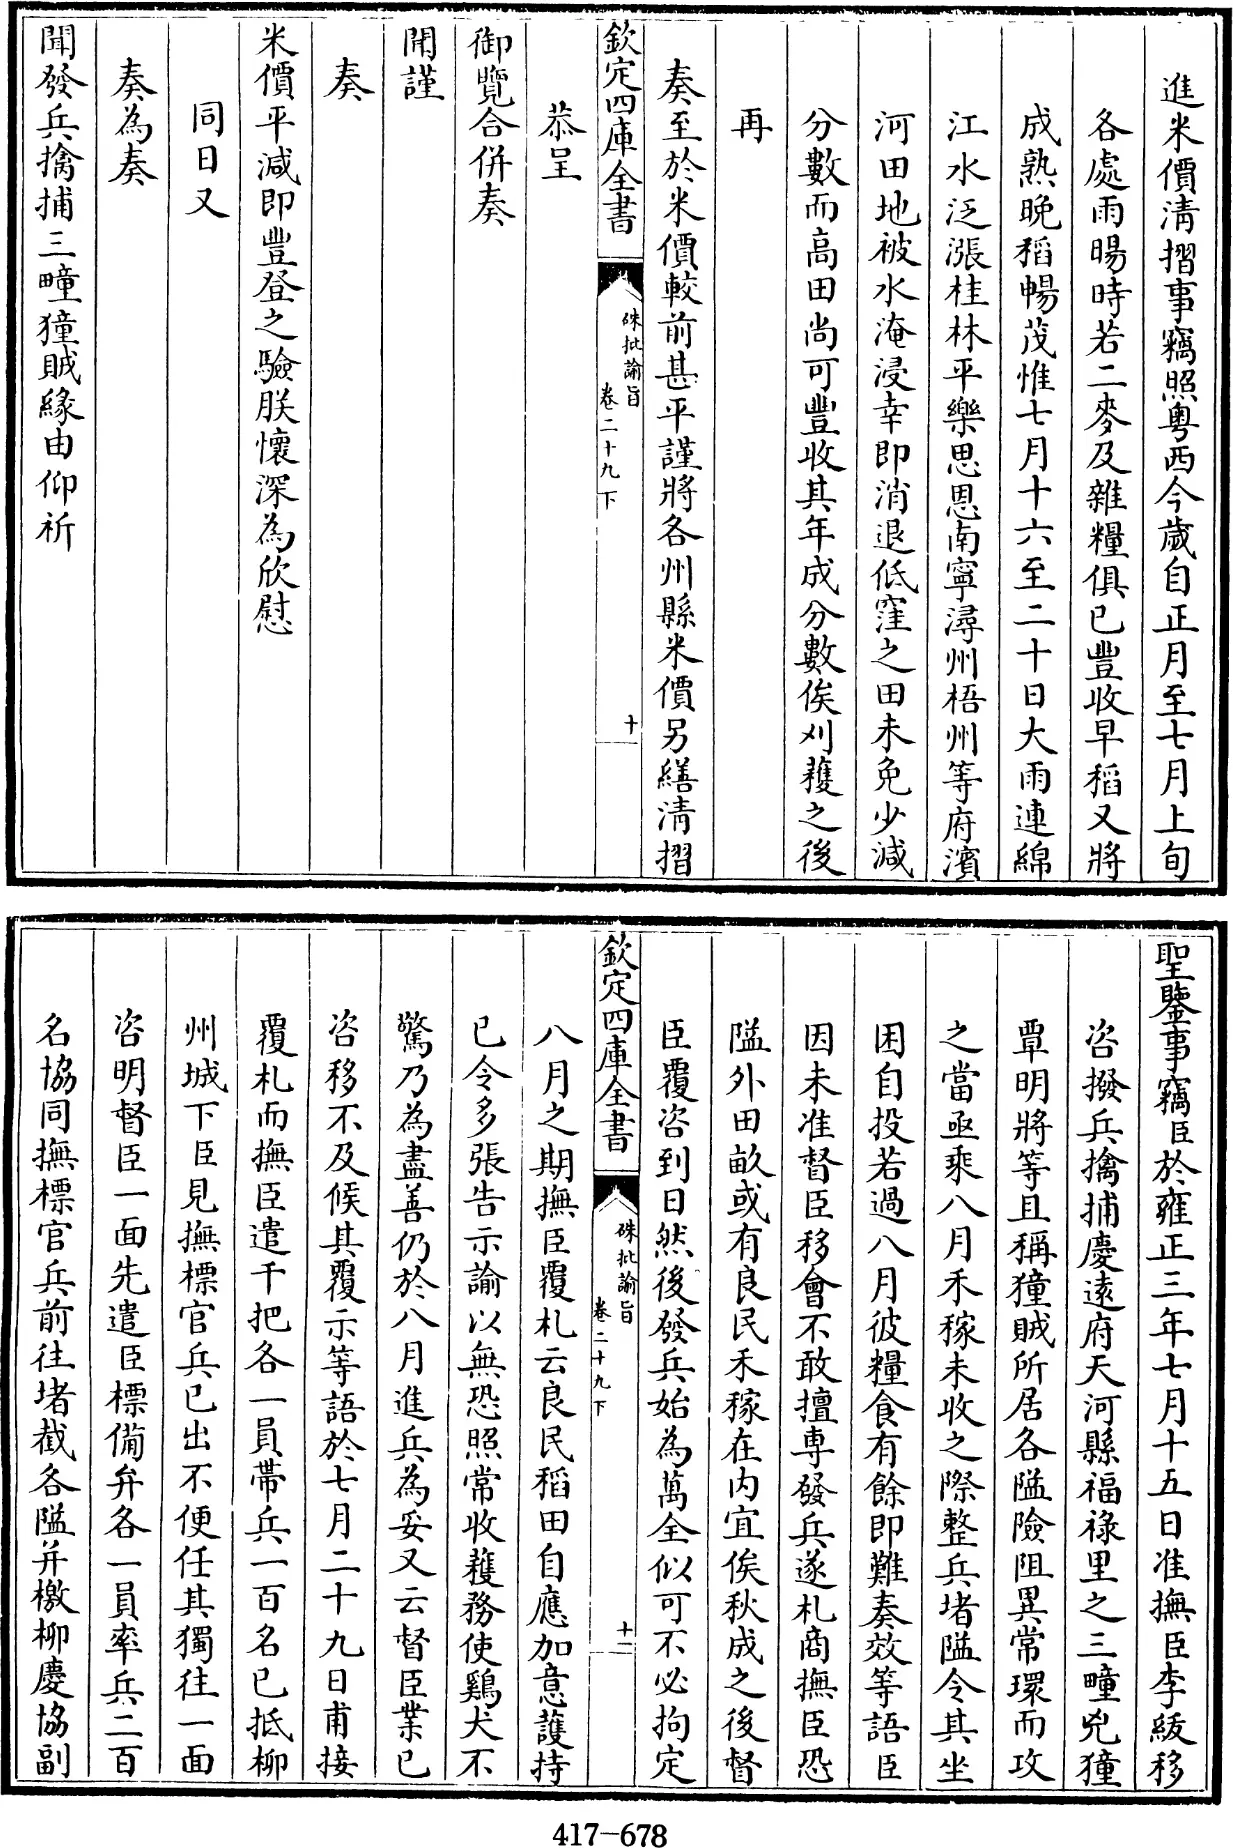 進米價清摺事竊照粵西今歲自正月至七月上旬
各處雨暘時若二麥及雜糧俱已豐收早稻又將
成熟晚稻暢茂惟七月十六至二十日大雨連綿
江水泛漲桂林平樂思恩南寧潯州梧州等府濱
河田地被水淹浸幸即消退低窪之田未免少減
分數而高田尚可豐收其年成分數俟刈穫之後
再
奏至於米價較前甚平謹將各州縣米價另繕清摺
欽定四庫全書
硃批諭旨
卷二十九下
十
恭呈
御覽合併奏
聞謹
奏
米價平減即豐登之驗朕懷深為欣慰
同日又
奏為奏
聞發兵擒捕三疃獞賊緣由仰祈
聖鑒事竊臣於雍正三年七月十五日准撫臣李紱移
咨撥兵擒捕慶遠府天河縣福祿里之三疃兇獞
覃明將等且稱獞賊所居各隘險阻異常環而攻
之當亟乘八月禾稼未收之際整兵堵隘令其坐
困自投若過八月彼糧食有餘即難奏效等語臣
因未准督臣移會不敢擅專發兵遂札商撫臣恐
隘外田畝或有良民禾稼在內宜俟秋成之後督
臣覆咨到日然後發兵始為萬全似可不必拘定
欽定四庫全書
硃批諭旨
卷二十九下
十一
八月之期撫臣覆札云良民稻田自應加意護持
已令多張告示諭以無恐照常收穫務使鷄犬不
驚乃為盡善仍於八月進兵為妥又云督臣業已
咨移不及候其覆示等語於七月二十九日甫接
覆札而撫臣遣千把各一員帶兵一百名已抵柳
州城下臣見撫標官兵已出不便任其獨往一面
咨明督臣一面先遣臣標備弁各一員率兵二百
名協同撫標官兵前往堵截各隘并檄柳慶協副
417-678